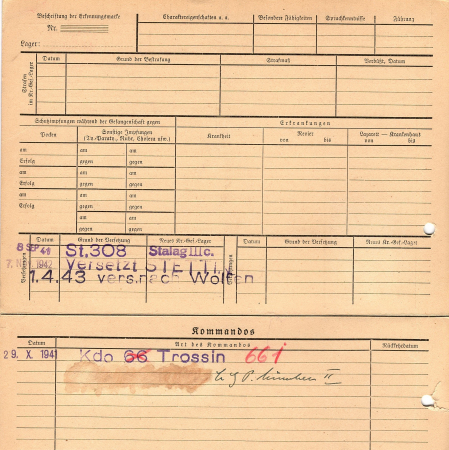 Beschriftung der Erkennungsmarke Charaktereigenschaften u. a. Besondere Fähigkeiten Sprachkenntnisse Führung
Nr.
Lager:
Strafen im Kr.-Gef.-Lager Datum Grund der Bestrafung Strafmaß Verbüßt, Datum
Schutzimpfungen während der Gefangenschaft gegen Erkrankungen
Pocken Sonstige Impfungen (Ty.-Paraty., Ruhr, Cholera usw.) Krankheit Revier von bis Lazarett – Krankenhaus von bis
am am am
Erfolg gegen gegen
am am am
Erfolg gegen gegen
am am am
Erfolg gegen gegen
am am
gegen gegen
Versetzungen Datum Grund der Versetzung Neues Kr.-Gef.-Lager Datum Grund der Versetzung Neues Kr.-Gef.-Lager
8 SEP 41 St.308 Stalag III c.
1942 Versetzt
1.4.43 vers.nach Wolfen
Kommandos
Datum Art des Kommandos Rückkehrdatum
29. X. 1941 Kdo 66 Trossin 661
II